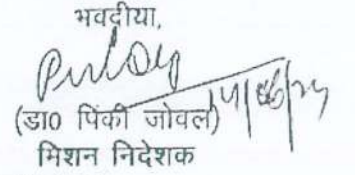 भवदीया,
(डा0 पिंकी जोवल)
मिशन निदेशक